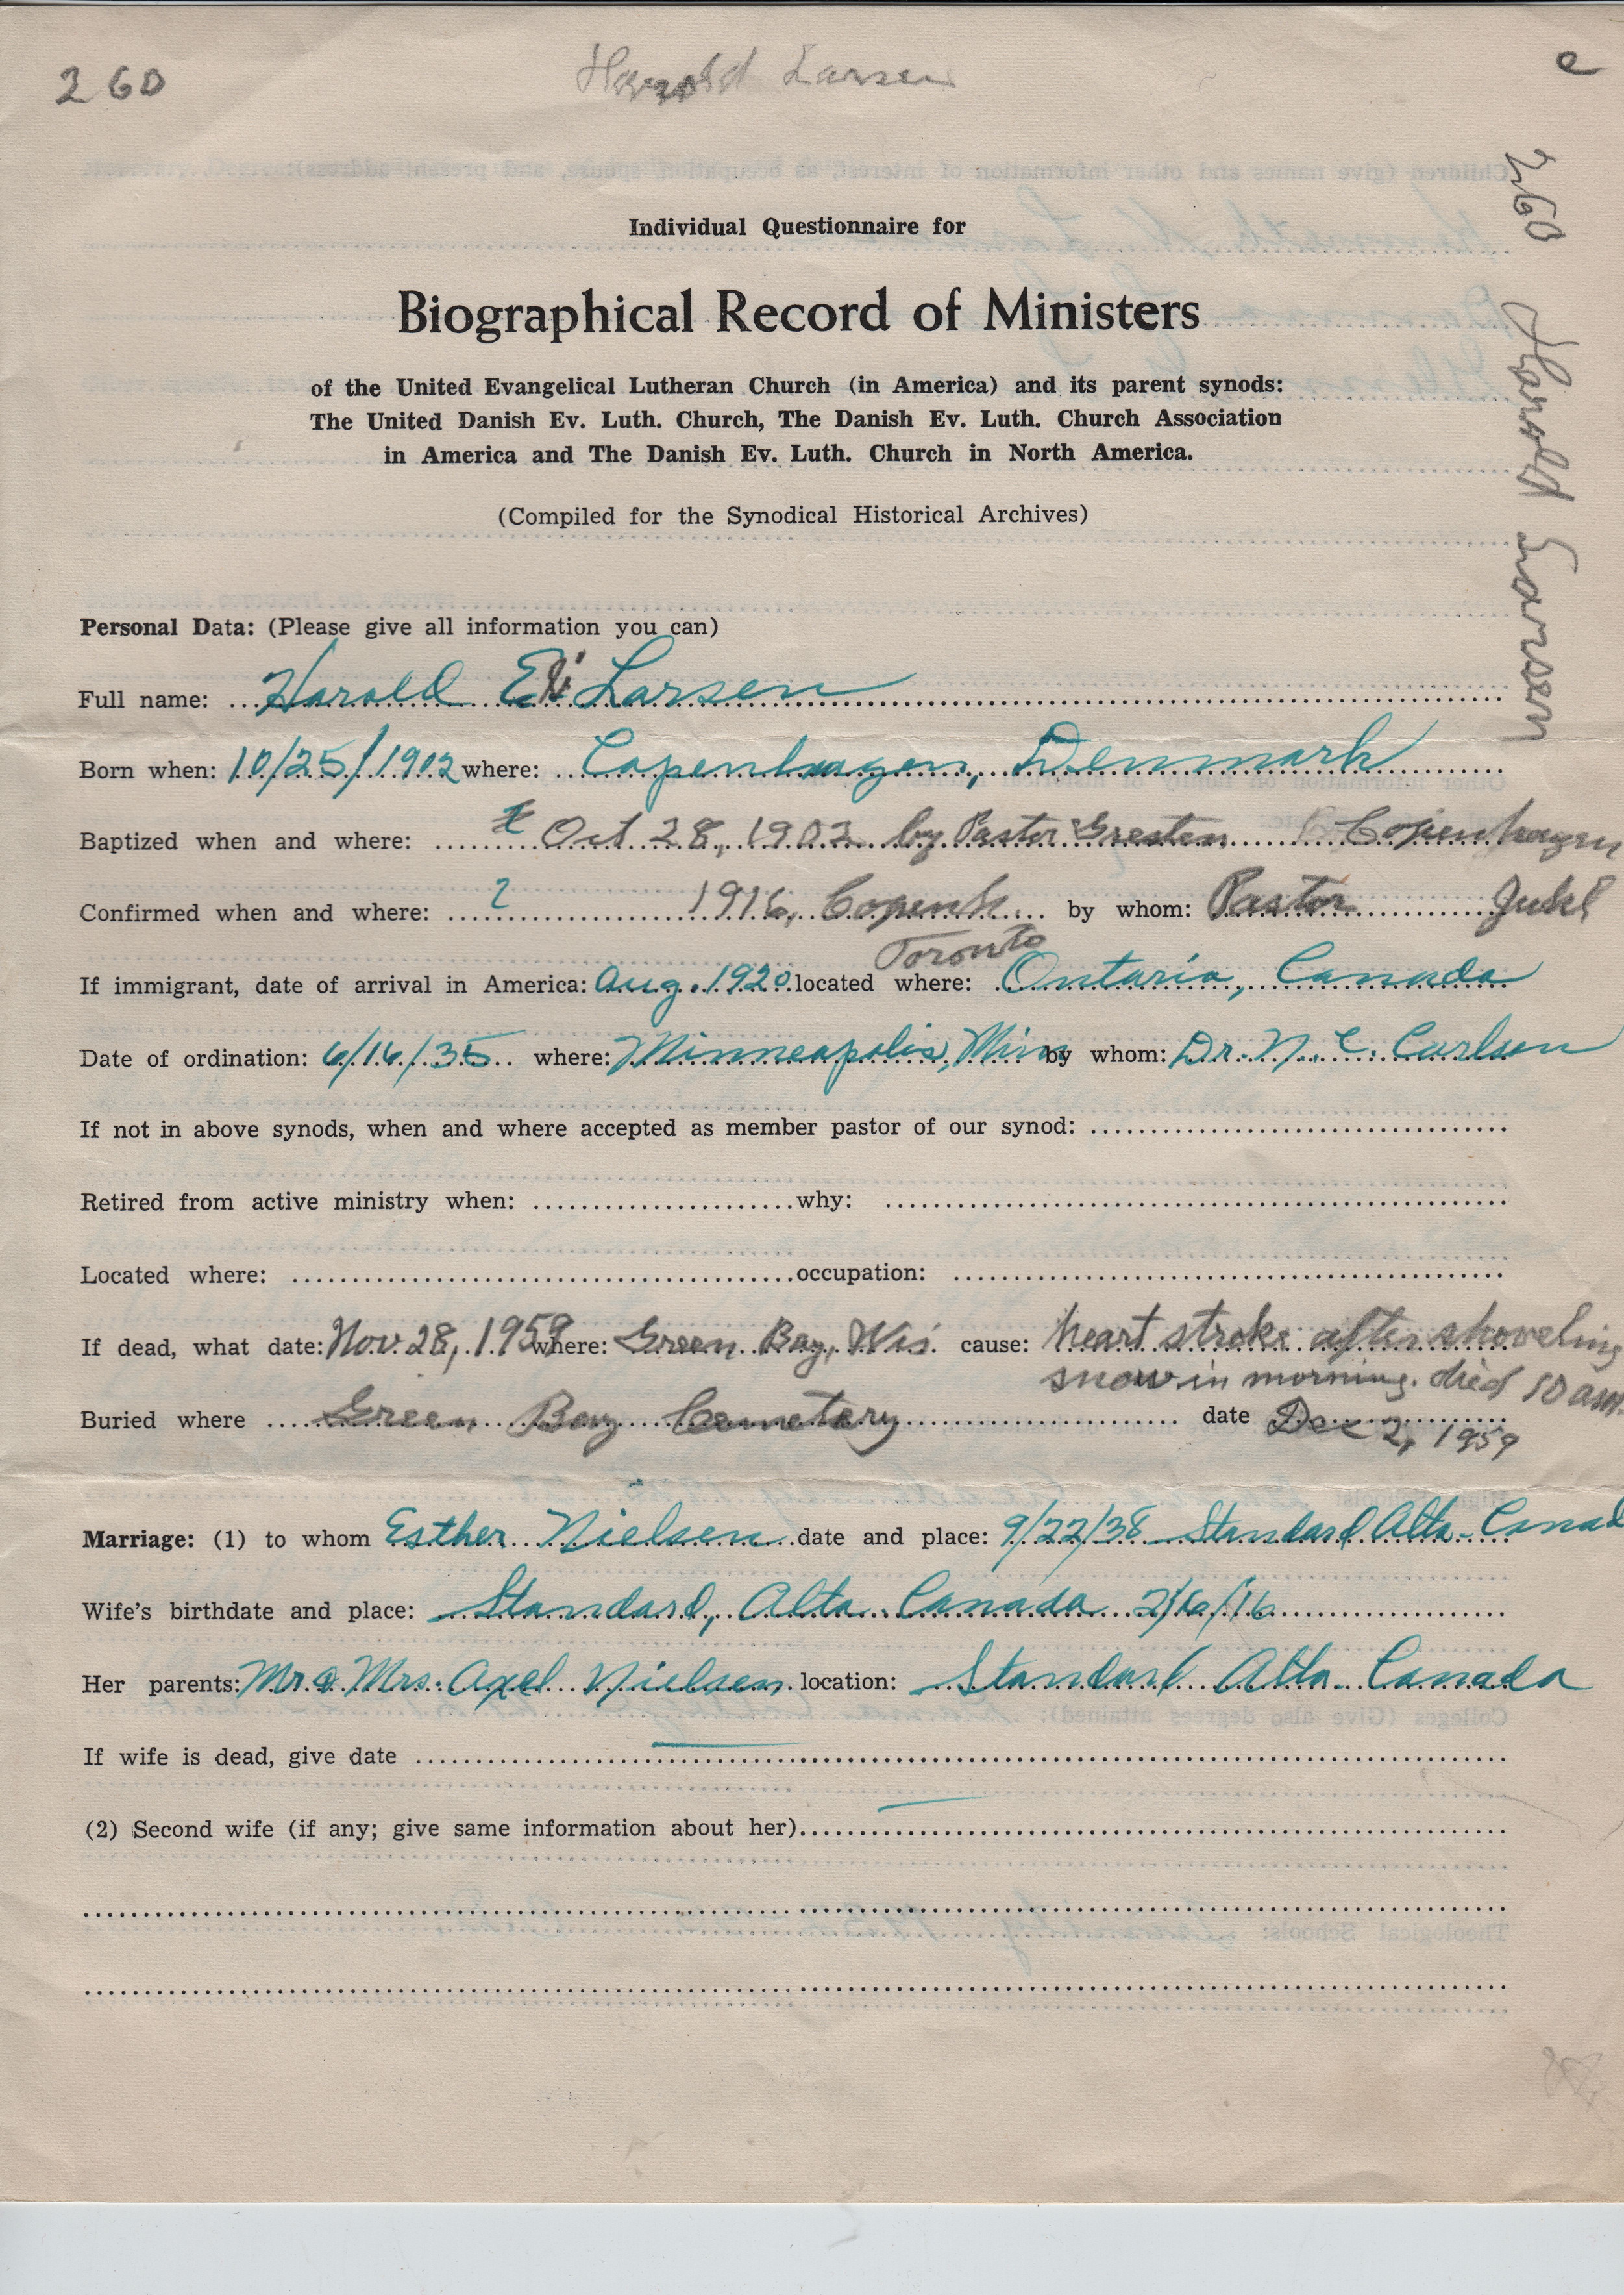 260
Harold Larsen
e
260 Harold Larsen
Individual Questionnaire for
Biographical Record of Ministers
of the United Evangelical Lutheran Church (in America) and its parent synods:
The United Danish Ev. Luth. Church, The Danish Ev. Luth. Church Association
in America and The Danish Ev. Luth. Church in North America.
(Compiled for the Synodical Historical Archives)
Personal Data: (Please give all information you can)
Full name: Harold Larsen
Born when: 10/25/1902 where: Copenhagen, Denmark
Baptized when and where: Oct 28, 1902 by Pastor Gresten Copenhagen
Confirmed when and where: ? 1916, Copenh. by whom: Pastor Juhl
Toronto
If immigrant, date of arrival in America: Aug. 1920 located where: Ontario, Canada
Date of ordination: 6/16/35 where: Minneapolis, Minn by whom: Dr. N. C. Carlsen
If not in above synods, when and where accepted as member pastor of our synod:
Retired from active ministry when: why:
Located where: occupation:
If dead, what date: Nov. 28, 1959 where: Green Bay, Wis. cause: heart stroke after shoveling
snow in morning. died 10 am.
Buried where Green Bay Cemetery date Dec 2, 1959
Marriage: (1) to whom Esther Nielsen date and place: 9/22/38 Standard Alta. Canad
Wife's birthdate and place: Standard, Alta. Canada 2/6/16
Her parents: Mr. & Mrs. Axel Nielsen location: Standard Alta. Canada
If wife is dead, give date
(2) Second wife (if any; give same information about her)